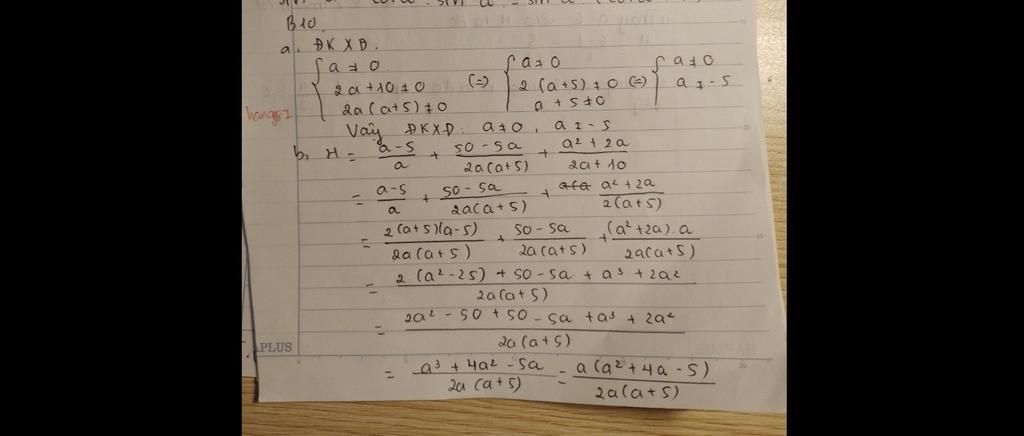 B10.
a. ĐKXĐ:
{ a ≠ 0 { a ≠ 0 { a ≠ 0
2a + 10 ≠ 0 (=) 2(a+5) ≠ 0 (=) a ≠ -5
2a(a+5) ≠ 0 a + 5 ≠ 0
Vậy ĐKXĐ: a ≠ 0, a ≠ -5
b, H = (a-5)/a + (50-5a)/(2a(a+5)) + (a² + 2a)/(2a + 10)
= (a-5)/a + (50-5a)/(2a(a+5)) + (a² + 2a)/(2(a+5))
= (2(a+5)(a-5))/(2a(a+5)) + (50-5a)/(2a(a+5)) + ((a²+2a).a)/(2a(a+5))
= (2(a²-25) + 50 - 5a + a³ + 2a²)/(2a(a+5))
= (2a² - 50 + 50 - 5a + a³ + 2a²)/(2a(a+5))
APLUS
= (a³ + 4a² - 5a)/(2a(a+5)) = (a(a² + 4a - 5))/(2a(a+5))